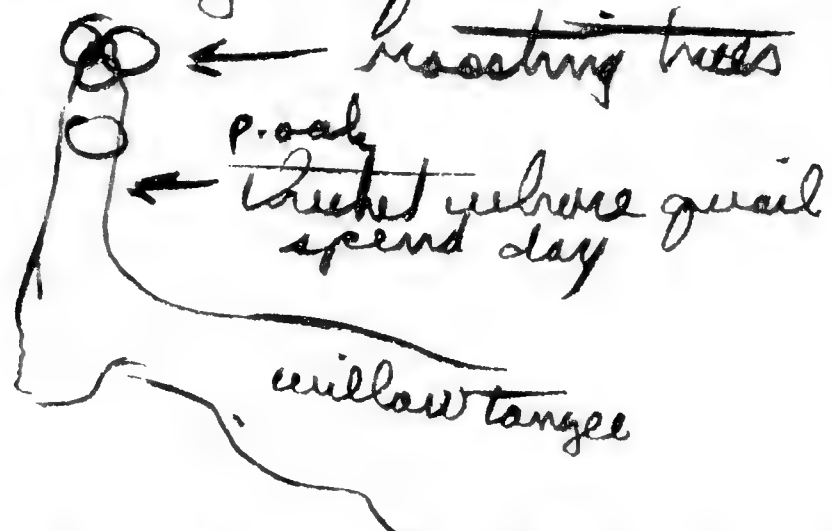 roosting trees
p. oak
thicket where quail
spend day
willow tangle